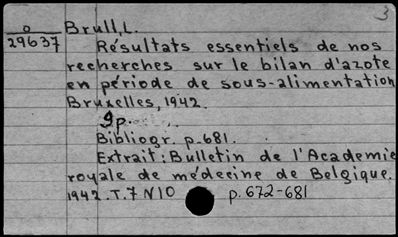 3
o Brull, L.
29637 Résultats essentiels de nos
recherches sur le bilan d'azote
en période de sous-alimentation
Bruxelles, 1942.
9p.
Bibliogr. p.681.
Extrait: Bulletin de l'Academie
royale de médecine de Belgique.
1942.T.7 N10 p.672-681